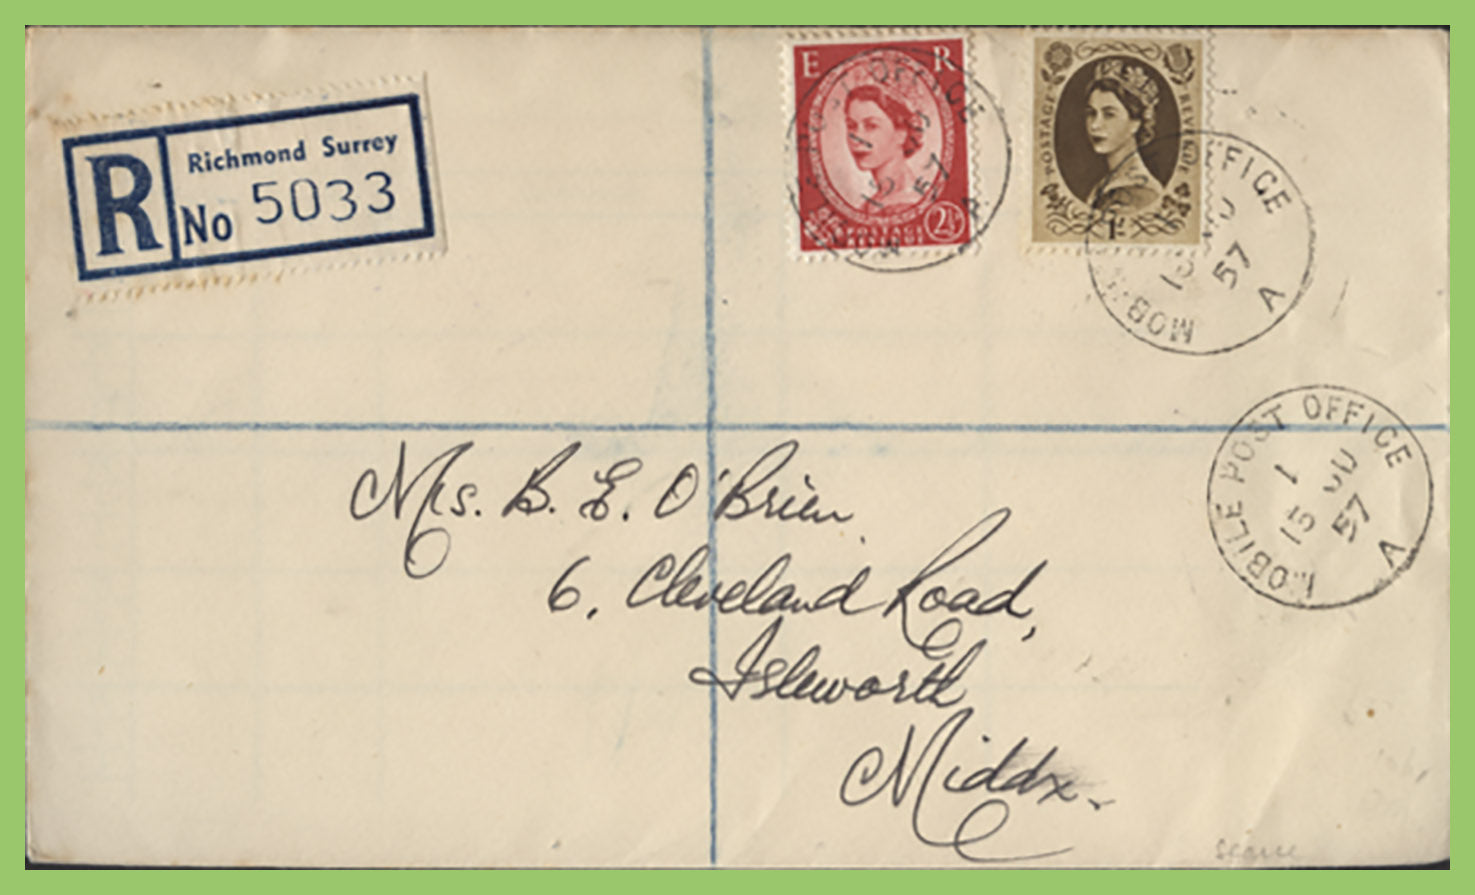 R
Richmond Surrey
No 5033
E R
POSTAGE
2½D
POSTAGE REVENUE
1/-
POST OFFICE
57
A
MOBILE POST OFFICE
1
15 JU
57
A
MOBILE POST OFFICE
1
15 JU
57
A
Mrs. B. E. O'Brien
6, Cleveland Road,
Isleworth
Middx.